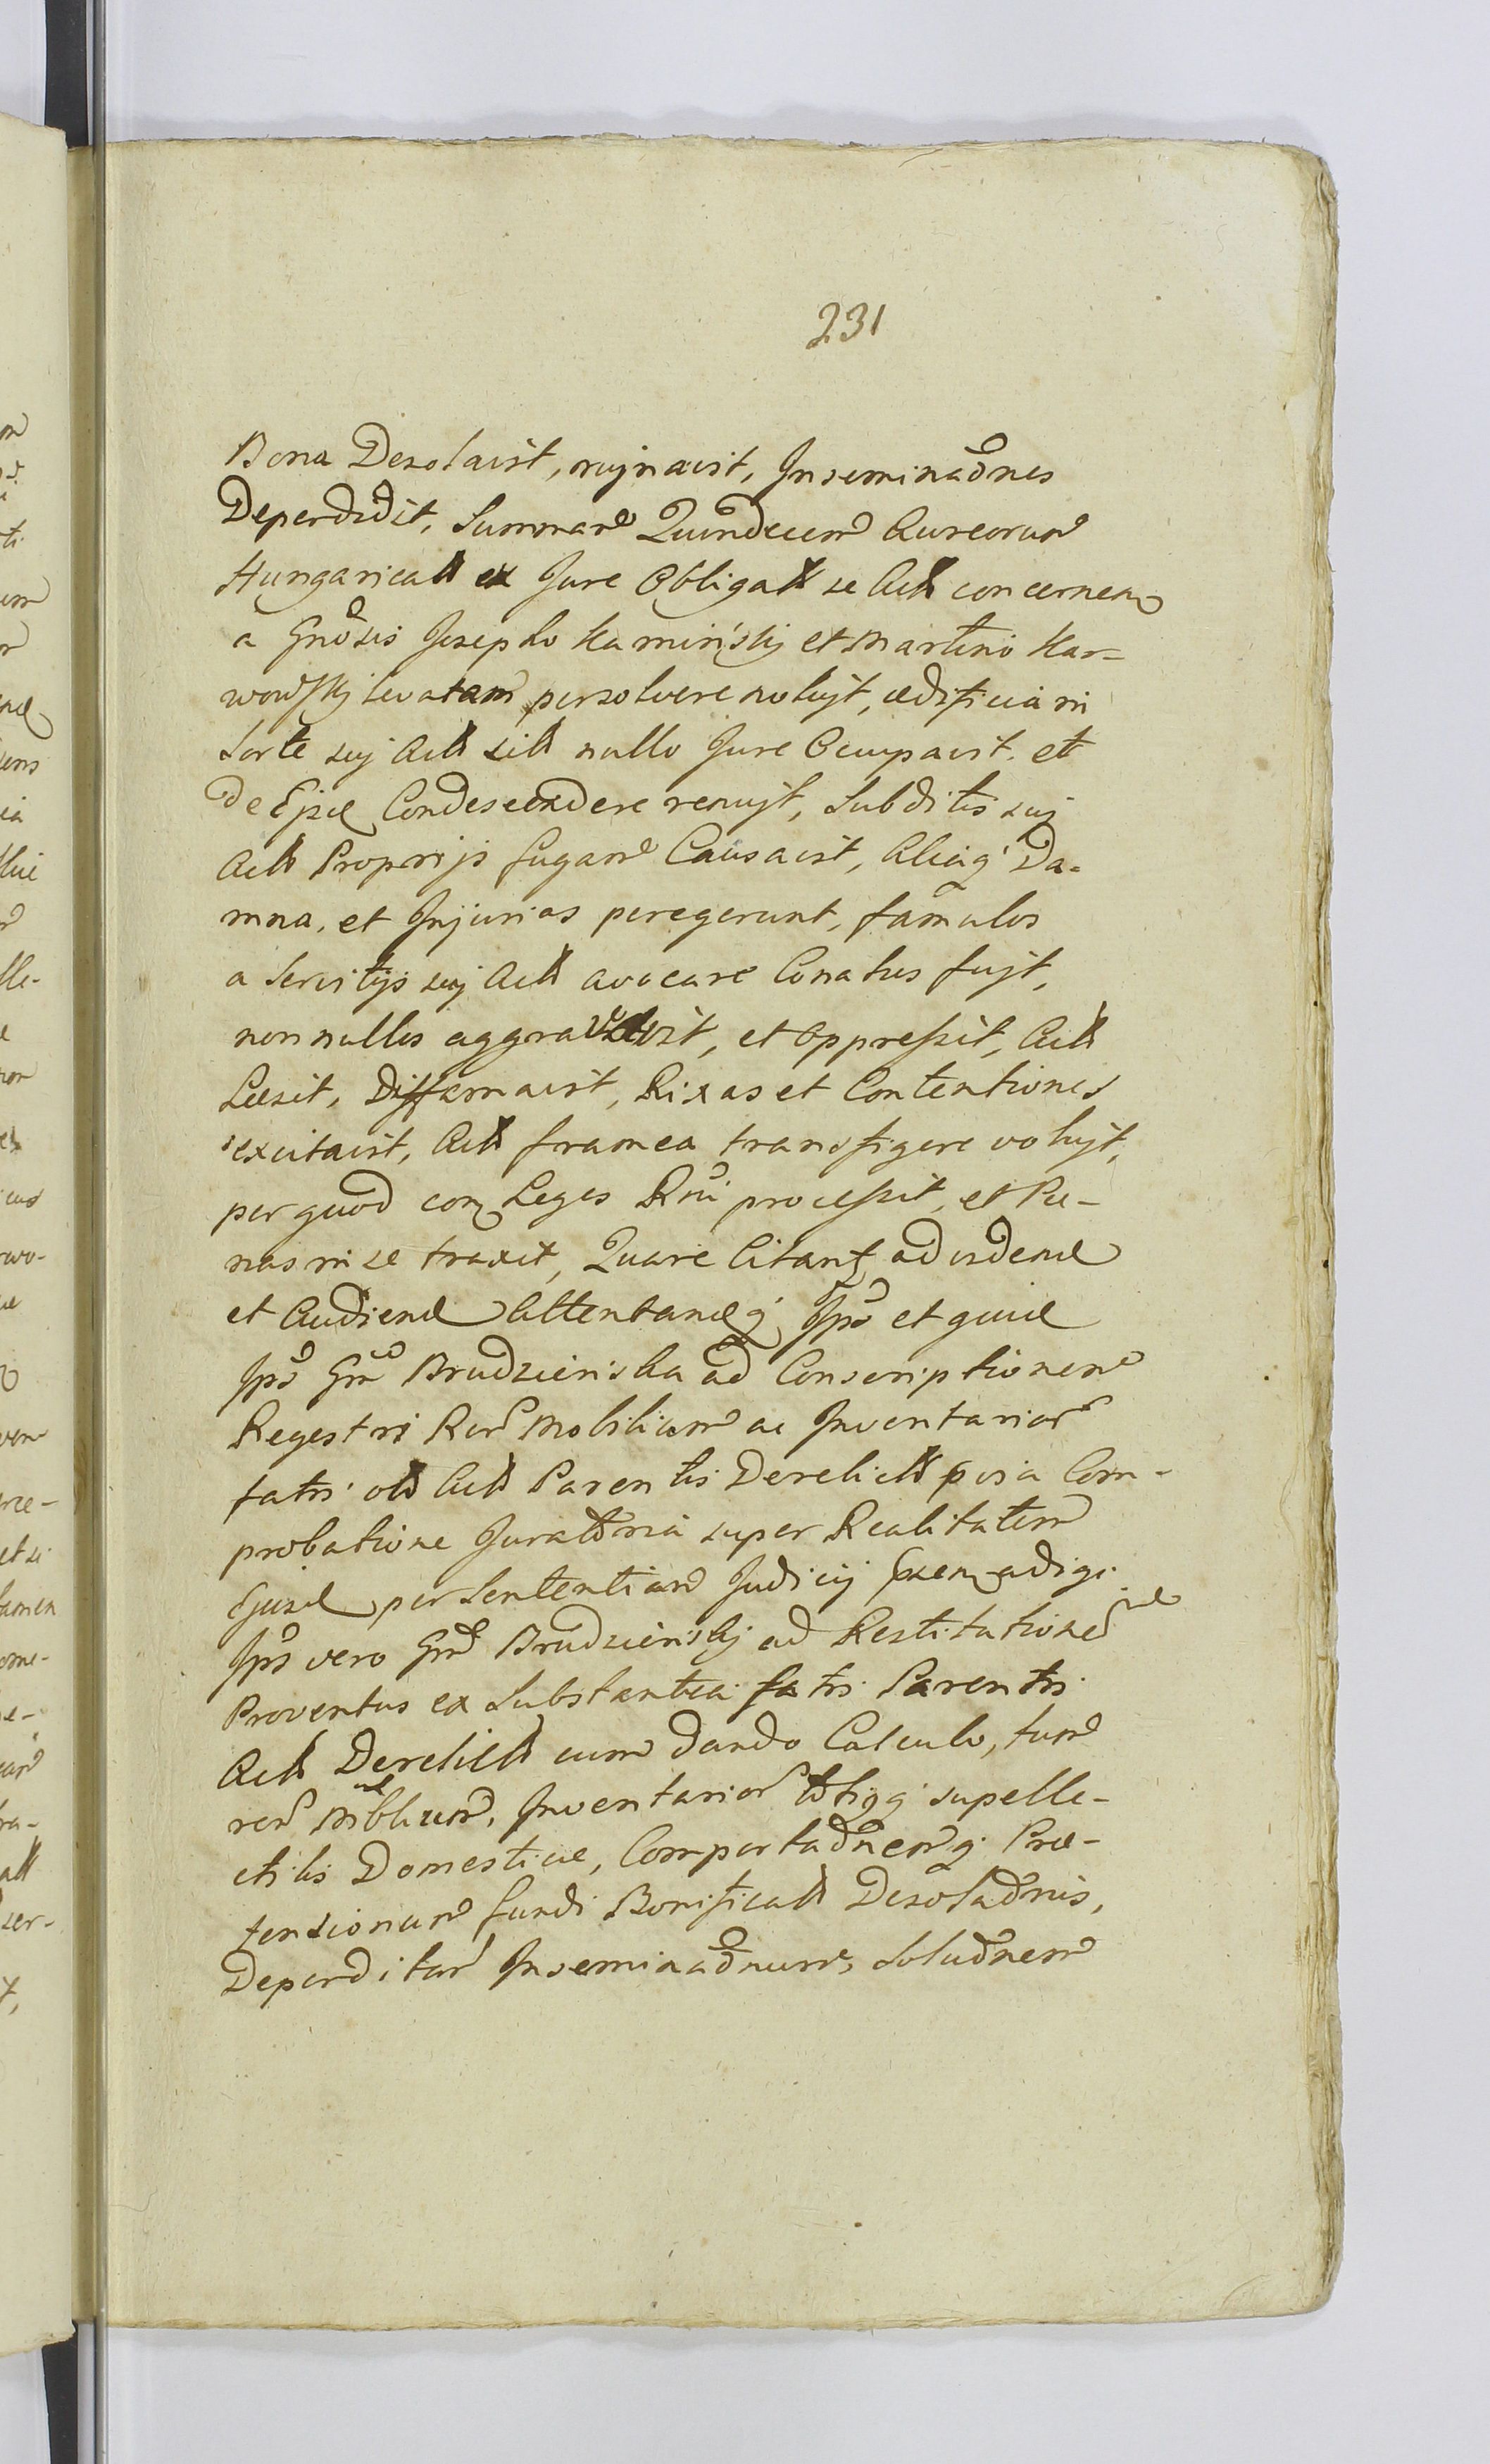 231
Bona Desolavit, rujnavit, Inseminaõnes
Deperdidit, Summam Quindecem Aureorum
Hungaricall ex Jure Obligall se Actt concernen
a Gnõsis Josepho Kamiński et Martino Kar-
wowskj levatam persolvere nolujt, ædificia in
Sorte suj Actt sitt nullo Jure Occupavit et
de Ejsd Condescendere renujt, Subditis suj
Actt Proprijs fugam Causavit, Aliaq Da-
mna, et Injurias peregerunt, famulos
a Servitijs suj Actt avocare Conatus fujt,
nonnullos aggravavit, et oppressit, Actt
Læsit, Diffamavit, Rixas et Contentiones
excitavit, Actt framea transfigere volujt,
per quod con Leges Rni processit, et Pæ-
nas in se traxit, Quare Citant ad viden
et Audiend Attentandq Ips et quid
Ips Gm Brudzieńska ad Conscriptionem
Regestri Rer Mobilium ac Inventarior
fatri oll Actt Parentis Derelictt pvia Com-
probatione Juratoria super Realitatem
Ejusd per Sententiam Judicij psen adigi
Ips vero Gm Brudzieńskj ad Restitutionem
Proventus ex Substantia fatri Parentis
Actt Derelictt cum dando Calculo, tum
rer Mobilium, Inventarior totiqq supelle-
ctilis Domesticæ, Comportaõnemq Præ-
tensionum fundi Bonificall Desolaõnis,
Deperditar Inseminaõnum, Soluõnem